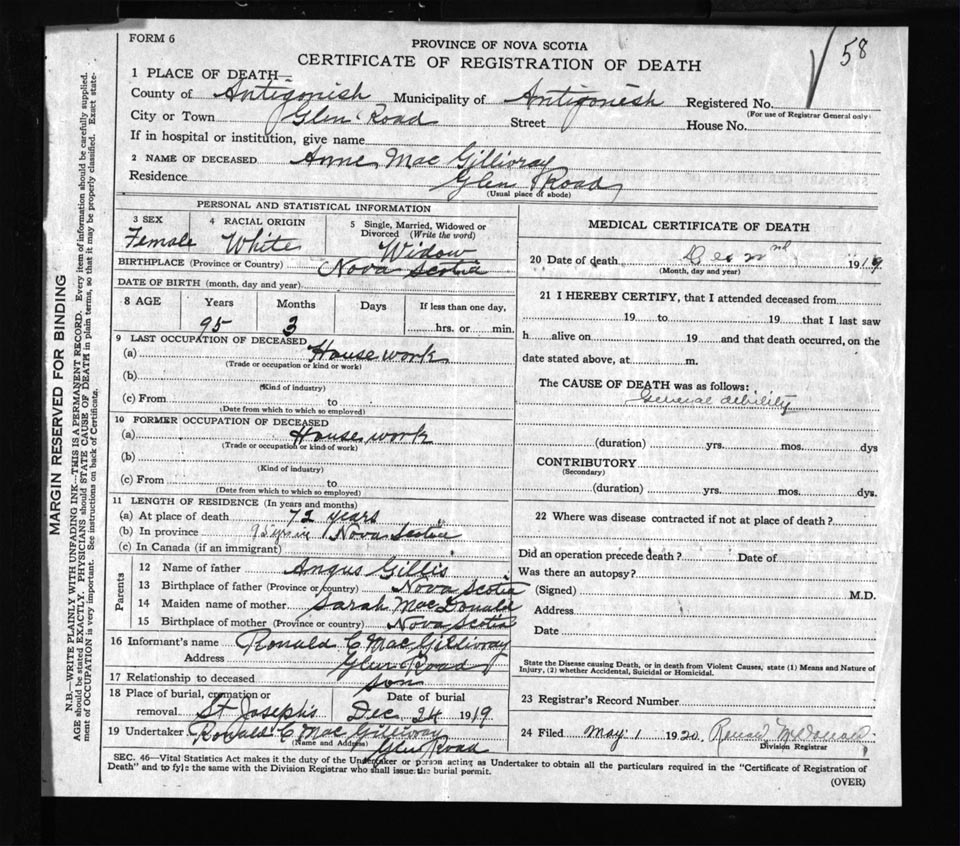 FORM 6
58
PROVINCE OF NOVA SCOTIA
CERTIFICATE OF REGISTRATION OF DEATH
1 PLACE OF DEATH—
County of Antigonish Municipality of Antigonish Registered No.
(For use of Registrar General only)
City or Town Glen Road Street House No.
If in hospital or institution, give name
2 NAME OF DECEASED Anne Mac Gillivray
Residence Glen Road
(Usual place of abode)
PERSONAL AND STATISTICAL INFORMATION
3 SEX 4 RACIAL ORIGIN 5 Single, Married, Widowed or Divorced (Write the word)
Female White Widow
BIRTHPLACE (Province or Country) Nova Scotia
DATE OF BIRTH (month, day and year)
8 AGE Years Months Days If less than one day,
95 3 hrs. or min.
9 LAST OCCUPATION OF DECEASED
(a) House work
(Trade or occupation or kind or work)
(b)
(Kind of industry)
(c) From to
(Date from which to which so employed)
10 FORMER OCCUPATION OF DECEASED
(a) House work
(Trade or occupation or kind of work)
(b)
(Kind of industry)
(c) From to
(Date from which to which so employed)
11 LENGTH OF RESIDENCE (In years and months)
(a) At place of death 72 years
(b) In province 95 yrs in Nova Scotia
(c) In Canada (if an immigrant)
Parents
12 Name of father Angus Gillis
13 Birthplace of father (Province or country) Nova Scotia
14 Maiden name of mother Sarah MacDonald
15 Birthplace of mother (Province or country) Nova Scotia
16 Informant's name Ronald C MacGillivray
Address Glen Road
17 Relationship to deceased son
18 Place of burial, cremation or removal St Joseph's Date of burial Dec 24 1919
19 Undertaker Ronald C Mac Gillivray
(Name and Address) Glen Road
MEDICAL CERTIFICATE OF DEATH
20 Date of death Dec 1919
(Month, day and year)
21 I HEREBY CERTIFY, that I attended deceased from
19 to 19 that I last saw
h alive on 19 and that death occurred, on the
date stated above, at m.
The CAUSE OF DEATH was as follows:
General debility
(duration) yrs. mos. dys
CONTRIBUTORY
(Secondary)
(duration) yrs. mos. dys.
22 Where was disease contracted if not at place of death?
Did an operation precede death? Date of
Was there an autopsy?
(Signed) M.D.
Address
Date
State the Disease causing Death, or in death from Violent Causes, state (1) Means and Nature of
Injury, (2) whether Accidental, Suicidal or Homicidal.
23 Registrar's Record Number
24 Filed May 1 1920 Ronald McDonald
Division Registrar
SEC. 46—Vital Statistics Act makes it the duty of the Undertaker or person acting as Undertaker to obtain all the particulars required in the "Certificate of Registration of
Death" and to fyle the same with the Division Registrar who shall issue the burial permit.
(OVER)
MARGIN RESERVED FOR BINDING
N.B.—WRITE PLAINLY WITH UNFADING INK—THIS IS A PERMANENT RECORD. Every item of information should be carefully supplied.
AGE should be stated EXACTLY. PHYSICIANS should STATE CAUSE OF DEATH in plain terms, so that it may be properly classified. Exact state-
ment of OCCUPATION is very important. See instructions on back of Certificate.